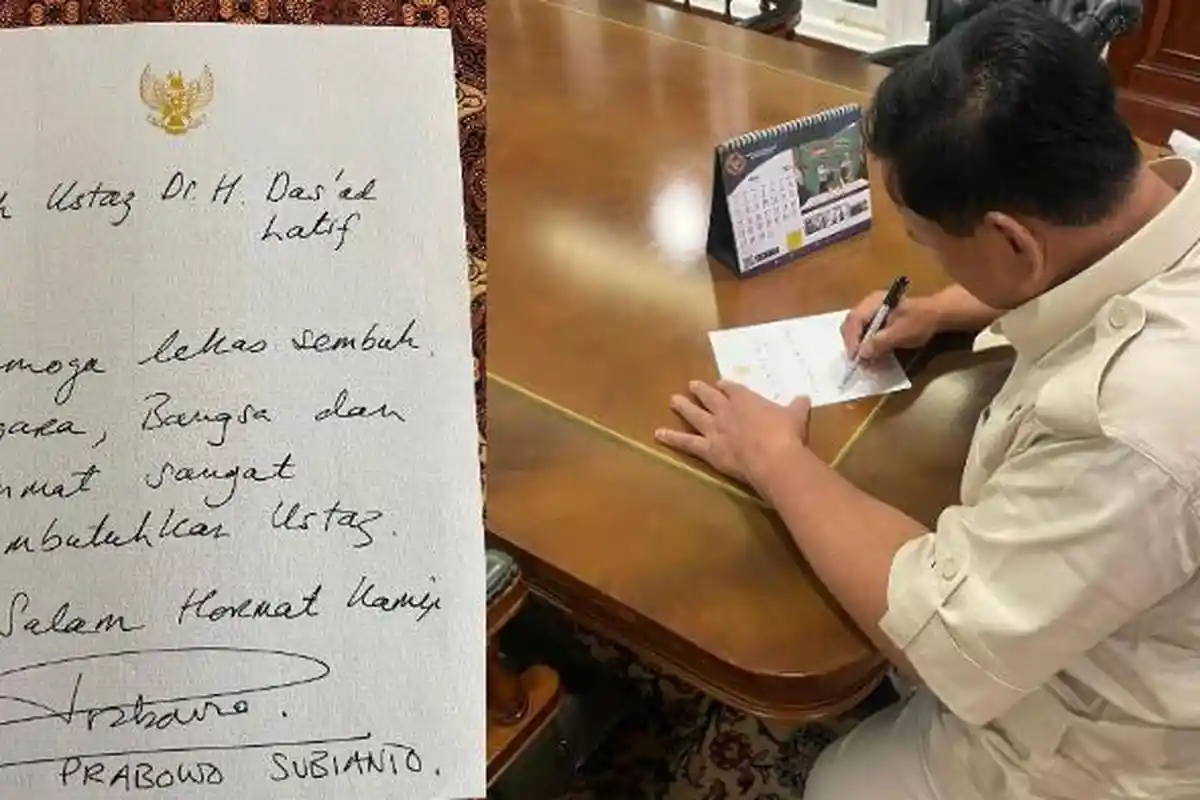 Ustaz Dr. H. Das'ad
Latif
moga lekas sembuh.
gara, Bangsa dan
mat sangat
mbutuhkan Ustaz.
Salam Hormat Kami,
Prabowo.
PRABOWO SUBIANTO.